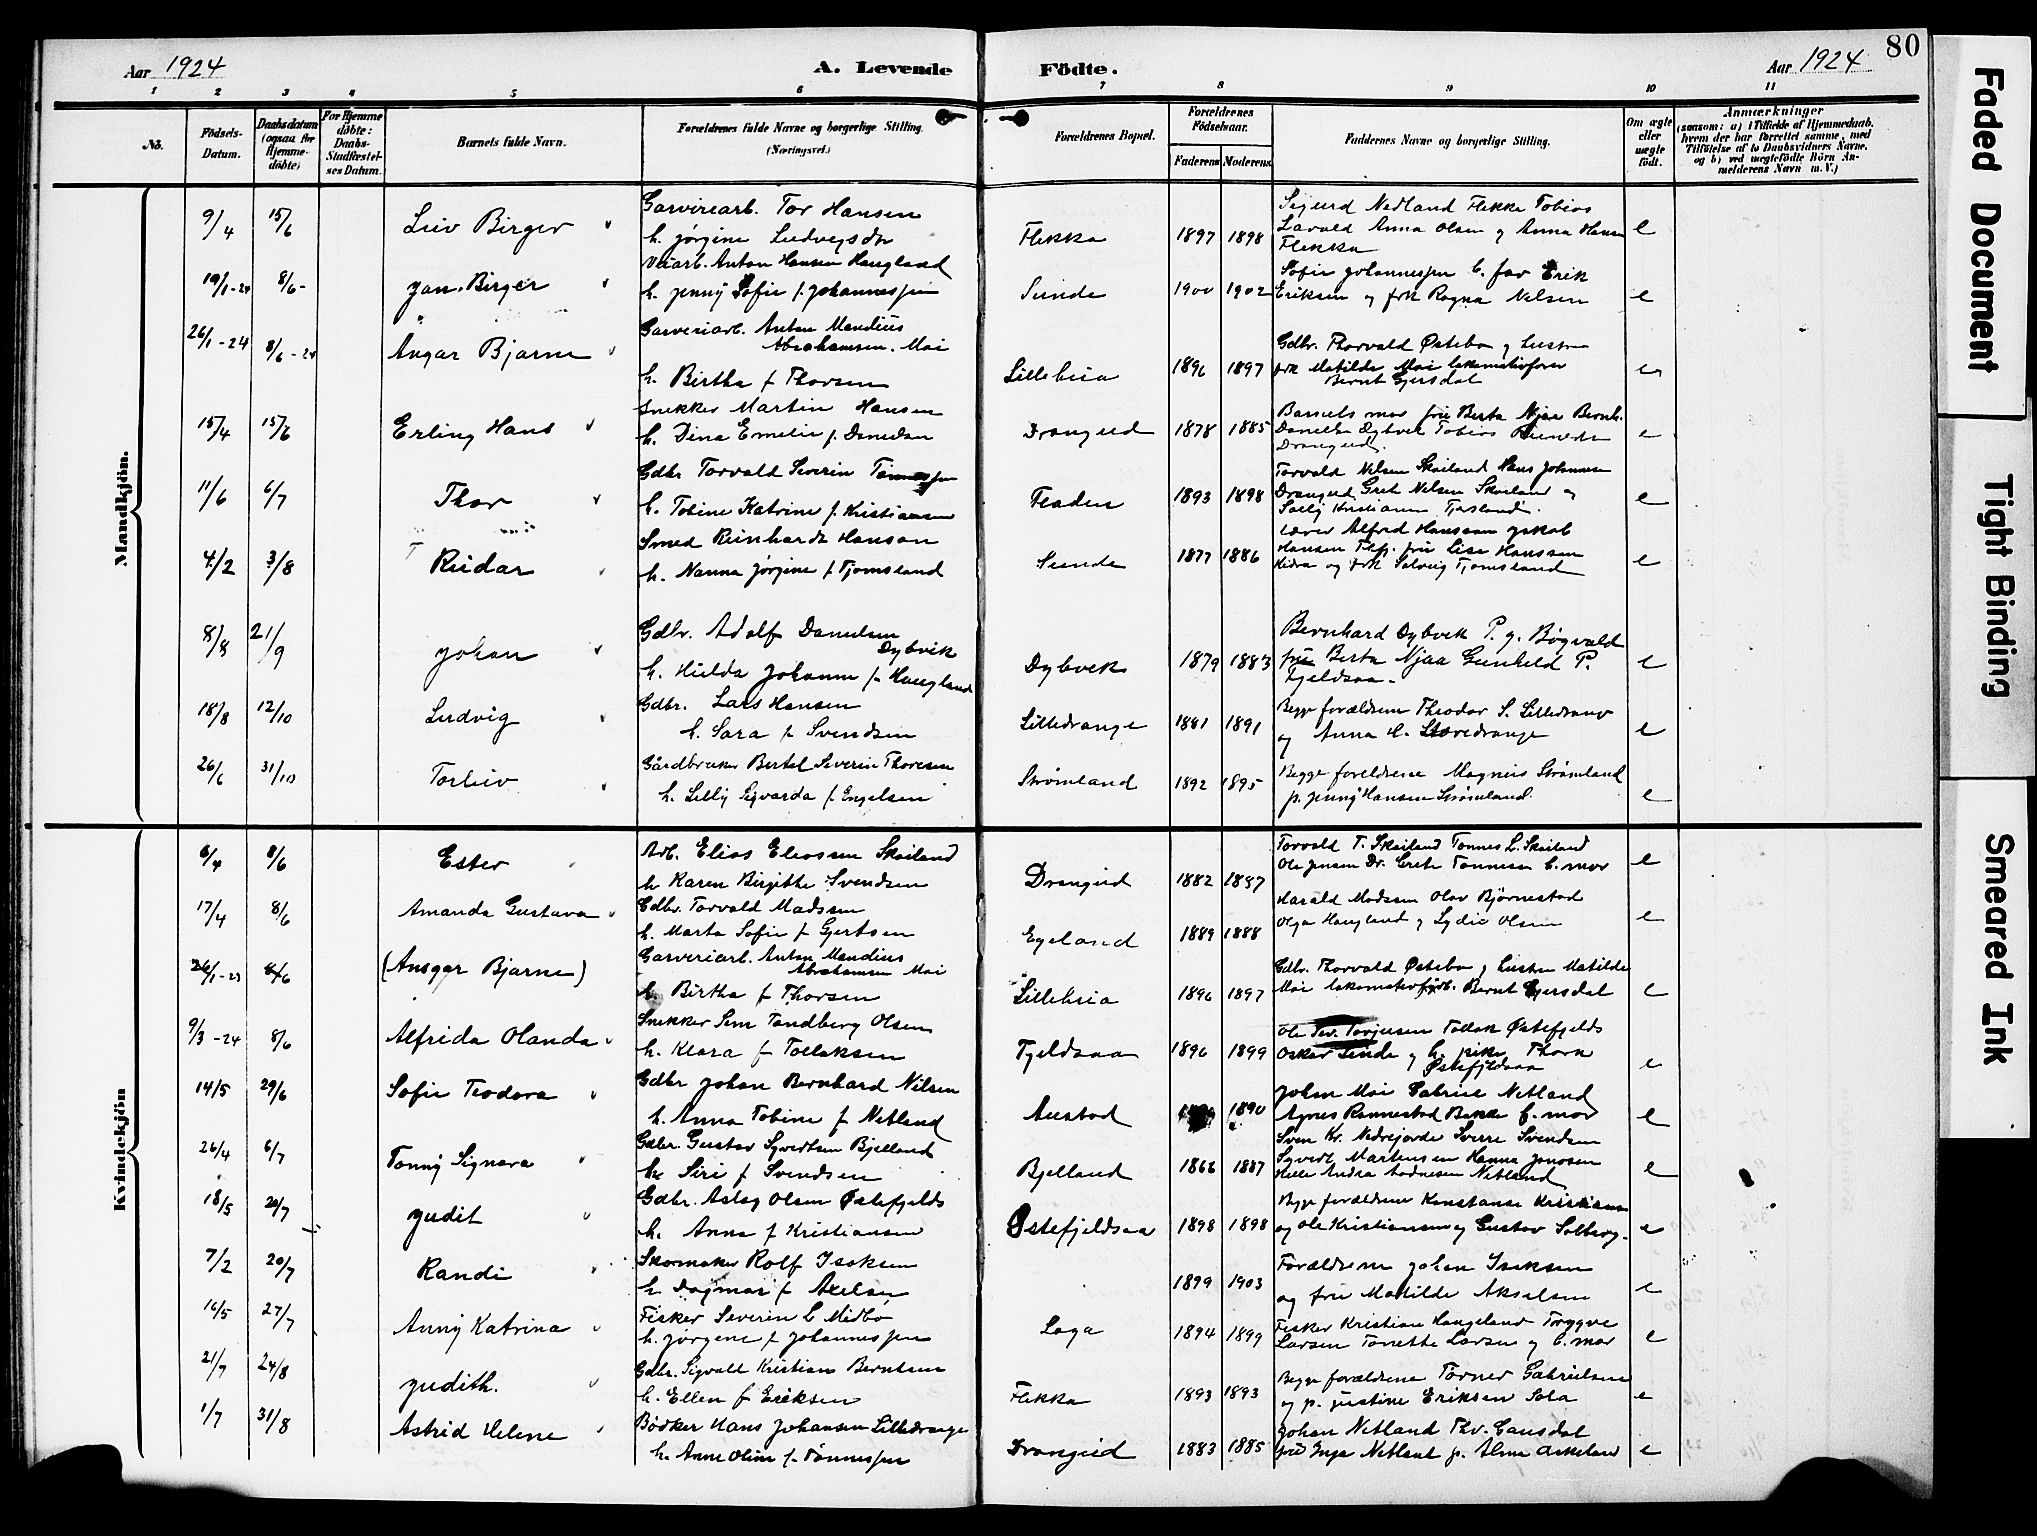 Aar 1924
A. Levende
Födte.
Aar 1924
80
1 2 3 4 5 6 7 8 9 10 11
No.
Födsels-Datum.
Daabsdatum (ogsaa for Hjemme-döbte)
For Hjemme döbte: Daabs-Stadfæstel-ses Datum.
Barnets fulde Navn.
Forældrenes fulde Navne og borgerlige Stilling. (Næringsvei.)
Forældrenes Bopæl.
Forældrenes Födselsaar.
Faderens Moderens
Faddernes Navne og borgerlige Stilling.
Om ægte eller uægte födt.
Anmærkninger
(saasom: a) i Tilfælde af Hjemmedaab, hvem der har forrettet samme, med Tilföielse af to Daabsvidners Navne, og b) ved uægtefödte Börn An-melderens Navn m. V.)
Mandkjön.
9/4 15/6 Leiv Birger Garveriarb. Tor Hansen
h. Jørgine Ludvigsdtr Flekka 1897 1898 Sigurd Nedland Flekke Tobias
Lavold Anna Olsen g Anna Hansen e
Flekka
19/1-24 8/6- Jan. Birger Anton Hansen Haugland
h. Jenny Sofie f. Johannessen Sunde 1900 1902 Sofie Johannessen b. far Erik
Eriksen og frk Ragna Nelsen e
26/1-24 8/6-24 Ansgar Bjarne Garveriarb. Anton Mandius
Abrahamsen. Moi
h. Birtha f Thorsen Lilleheia 1896 1897 Gdbr. Thorvald Østebø g Lustru
frk Matilde Moi lokomotivfører
Bernt Gjersdal e
15/4 15/6 Erling Hans Snekker Martin Hansen
h. Dina Emelie f. Danielsen Drangeid 1878 1885 Barnets mor fru Berta Njaa Bernh.
Danielsen Dybvik Tobias
Drangeid. e
11/6 6/7 Thor Gdbr Torvald Severin Tønnessen
h. Tobine Katrine f. Kristiansen Feaden 1893 1898 Torvald Nelsen Skailand Hans Johannsen
Drangeid Grete Nelsen Skailand og
Solly Kristiansen e
4/2 3/8 Reidar Smed Reinhardt Hanson
h. Nanna Jørgine f Tjomsland Sunde 1877 1886 Lærer Alfred Hanssen Jakob
Hansen Flif. fru Lise Hanssen
Hidra og frk Solveig Tjomsland e
8/8 21/9 Johan Gdbr. Adolf Danielsen
Dybvik
h. Hulda Johanne f Haugland Dybvik 1879 1883 Bernhard Dybvik P. g. Bøgvald
fru Berta Njaa Gunhild P.
Fjeldsaa- e
18/8 12/10 Ludvig Gdbr. Lars Hansen
h. Sara f Svendsen Lilledrange 1881 1891 Begge forældrene Theodor S. Lilledrang
og Anna H. Storedrange e
26/6 31/10 Torleiv Gårdbruker Bertel Severin Thorsen
h. Lilly Sigvarda f Engelsen Strømland 1892 1895 Begge foreldrene Magnus Strømland
p. Jenny Hansen Strømland. e
Kvindekjön
6/4 8/6 Ester Arb. Elias Eliassen Skailand
h Karen Birgitte Svendsen Drangeid 1882 1887 Torvald T. Skailand Tønnes L. Skailand
Ole Jensen Dr. Grete Tønnesen b. mor e
17/4 8/6 Amanda Gustava Gdbr. Torvald Madssen
h. Marta Sofie f Gjertsen Egeland 1889 1888 Harald Madssen Olav Bjørnestad
Olga Haugland g Lydia Olsen e
26/1-23 8/6 (Ansgar Bjarne) Garveriarb. Anton Mandius
Abrahamsen Moi
h. Birtha f Thorsen Lilleheia 1896 1897 Gdbr. Thorvald Østebø g Lustru Matilde
Moi lokomotivfyrb. Bernt Gjersdal e
9/3-24 8/6 Alfrida Olanda Snekker Sem Tandberg Olsen
h. Klara f Tollaksen Fjeldsaa 1896 1899 Ole Torjussen Tollak Østefjelds
Oskar Sinde g h. pike Thora
Østefjeldsaa e
14/5 29/6 Sofie Teodora Gdbr Johan Bernhard Nilsen
h. Anna Tobine f Netland Austad 1890 Johan Moi Gabriel Netland
Agnes Rannestad Bakke b. mor e
26/4 6/7 Tonny Signora Gdbr. Gustav Syvertsen Bjelland
h. Siri f Svendsen Bjelland 1866 1887 Sven Kr. Nedrejorde Sverre Svendsen
Syvert Martensen Hanna Jonasen
Helle Andra Aadnesen Netland e
18/5 20/7 Judit Gdbr. Aslag Olsen Østefjelds
h. Anna f Kristiansen Østefjeldsaa 1898 1898 Begge forældrene Konstanse Kristiansen
og Ole Kristiansen g Gustav Solberg. e
7/2 20/7 Randi Skomaker Rolf Isaksen
h. Dagmar f Axelsen 1899 1903 Forældrene Johan Isaksen
og fru Matilde Akselsen e
16/5 27/7 Anny Katrina Fisker Severin L Midbø
h. Jørgene f Johannessen Loga 1894 1899 Fisker Kristian Haugeland Trygve
Larsen Tonette Larsen g b. mor e
21/7 24/8 Judith. Gdbr. Sigvald Kristian Berntsen
h. Ellen f Eriksen Flekka 1893 1893 Begge forældrene Tørner Gabrielsen
og p. Justine Eriksen Sola e
1/7 31/8 Astrid Helene Bødker Hans Johansen Lilledrange
h. Anne Oline f. Tønnessen Drangeid 1883 1885 Johan Netland Thv. Gausdal
fru Inga Netland p. Alma Askeland e
Faded Document
Tight Binding
Smeared Ink